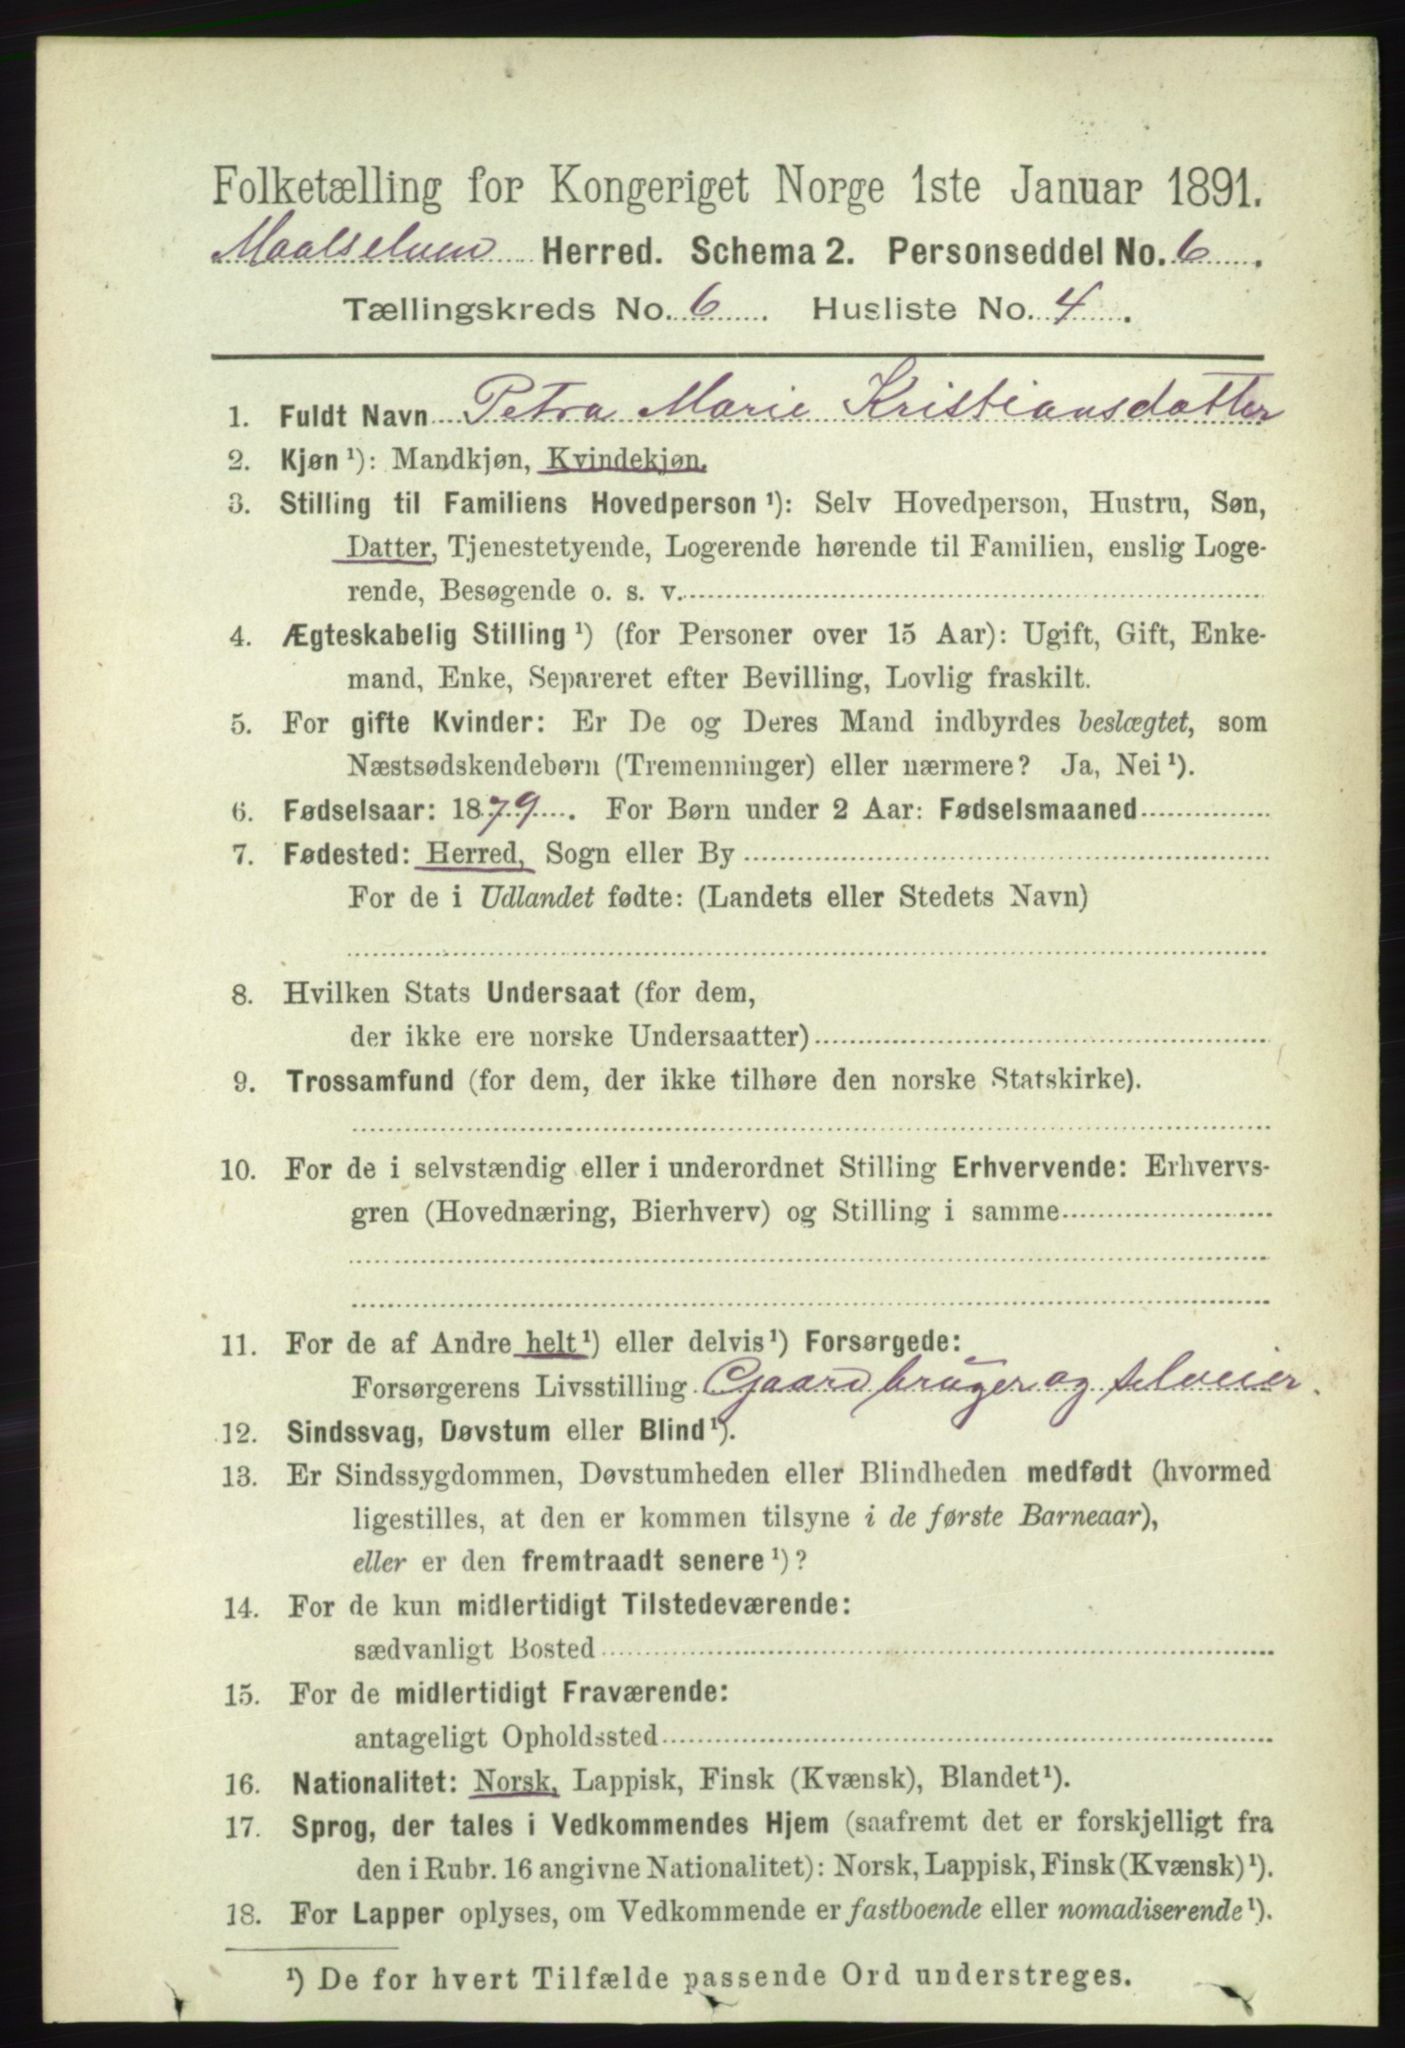 Folketælling for Kongeriget Norge 1ste Januar 1891.
Maalselven Herred. Schema 2. Personseddel No. 6.
Tællingskreds No. 6. Husliste No. 4.
1. Fuldt Navn Petra Marie Kristiansdatter
2. Kjøn ¹): Mandkjøn, Kvindekjøn.
3. Stilling til Familiens Hovedperson ¹): Selv Hovedperson, Hustru, Søn,
Datter, Tjenestetyende, Logerende hørende til Familien, enslig Loge-
rende, Besøgende o. s. v.
4. Ægteskabelig Stilling ¹) (for Personer over 15 Aar): Ugift, Gift, Enke-
mand, Enke, Separeret efter Bevilling, Lovlig fraskilt.
5. For gifte Kvinder: Er De og Deres Mand indbyrdes beslægtet, som
Næstsødskendebørn (Tremenninger) eller nærmere? Ja, Nei ¹).
6. Fødselsaar: 1879. For Børn under 2 Aar: Fødselsmaaned
7. Fødested: Herred, Sogn eller By
For de i Udlandet fødte: (Landets eller Stedets Navn)
8. Hvilken Stats Undersaat (for dem,
der ikke ere norske Undersaatter)
9. Trossamfund (for dem, der ikke tilhøre den norske Statskirke).
10. For de i selvstændig eller i underordnet Stilling Erhvervende: Erhvervs-
gren (Hovednæring, Bierhverv) og Stilling i samme
11. For de af Andre helt ¹) eller delvis ¹) Forsørgede:
Forsørgerens Livsstilling Gaardbruger og selveier.
12. Sindssvag, Døvstum eller Blind ¹).
13. Er Sindssygdommen, Døvstumheden eller Blindheden medfødt (hvormed
ligestilles, at den er kommen tilsyne i de første Barneaar),
eller er den fremtraadt senere ¹)?
14. For de kun midlertidigt Tilstedeværende:
sædvanligt Bosted
15. For de midlertidigt Fraværende:
antageligt Opholdssted
16. Nationalitet: Norsk, Lappisk, Finsk (Kvænsk), Blandet ¹).
17. Sprog, der tales i Vedkommendes Hjem (saafremt det er forskjelligt fra
den i Rubr. 16 angivne Nationalitet): Norsk, Lappisk, Finsk (Kvænsk) ¹).
18. For Lapper oplyses, om Vedkommende er fastboende eller nomadiserende ¹).
¹) De for hvert Tilfælde passende Ord understreges.